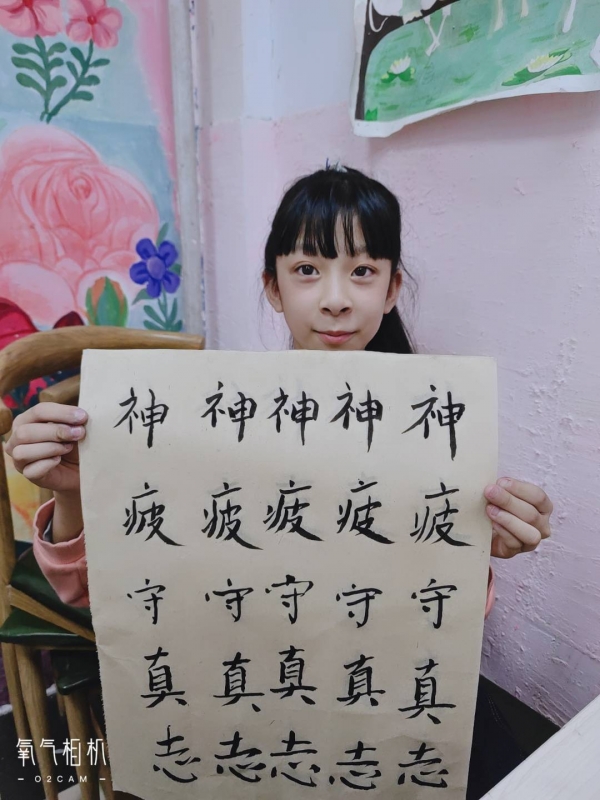 神神神神神
疲疲疲疲疲
守守守守守
真真真真真
志志志志志
氧气相机
- O2CAM -